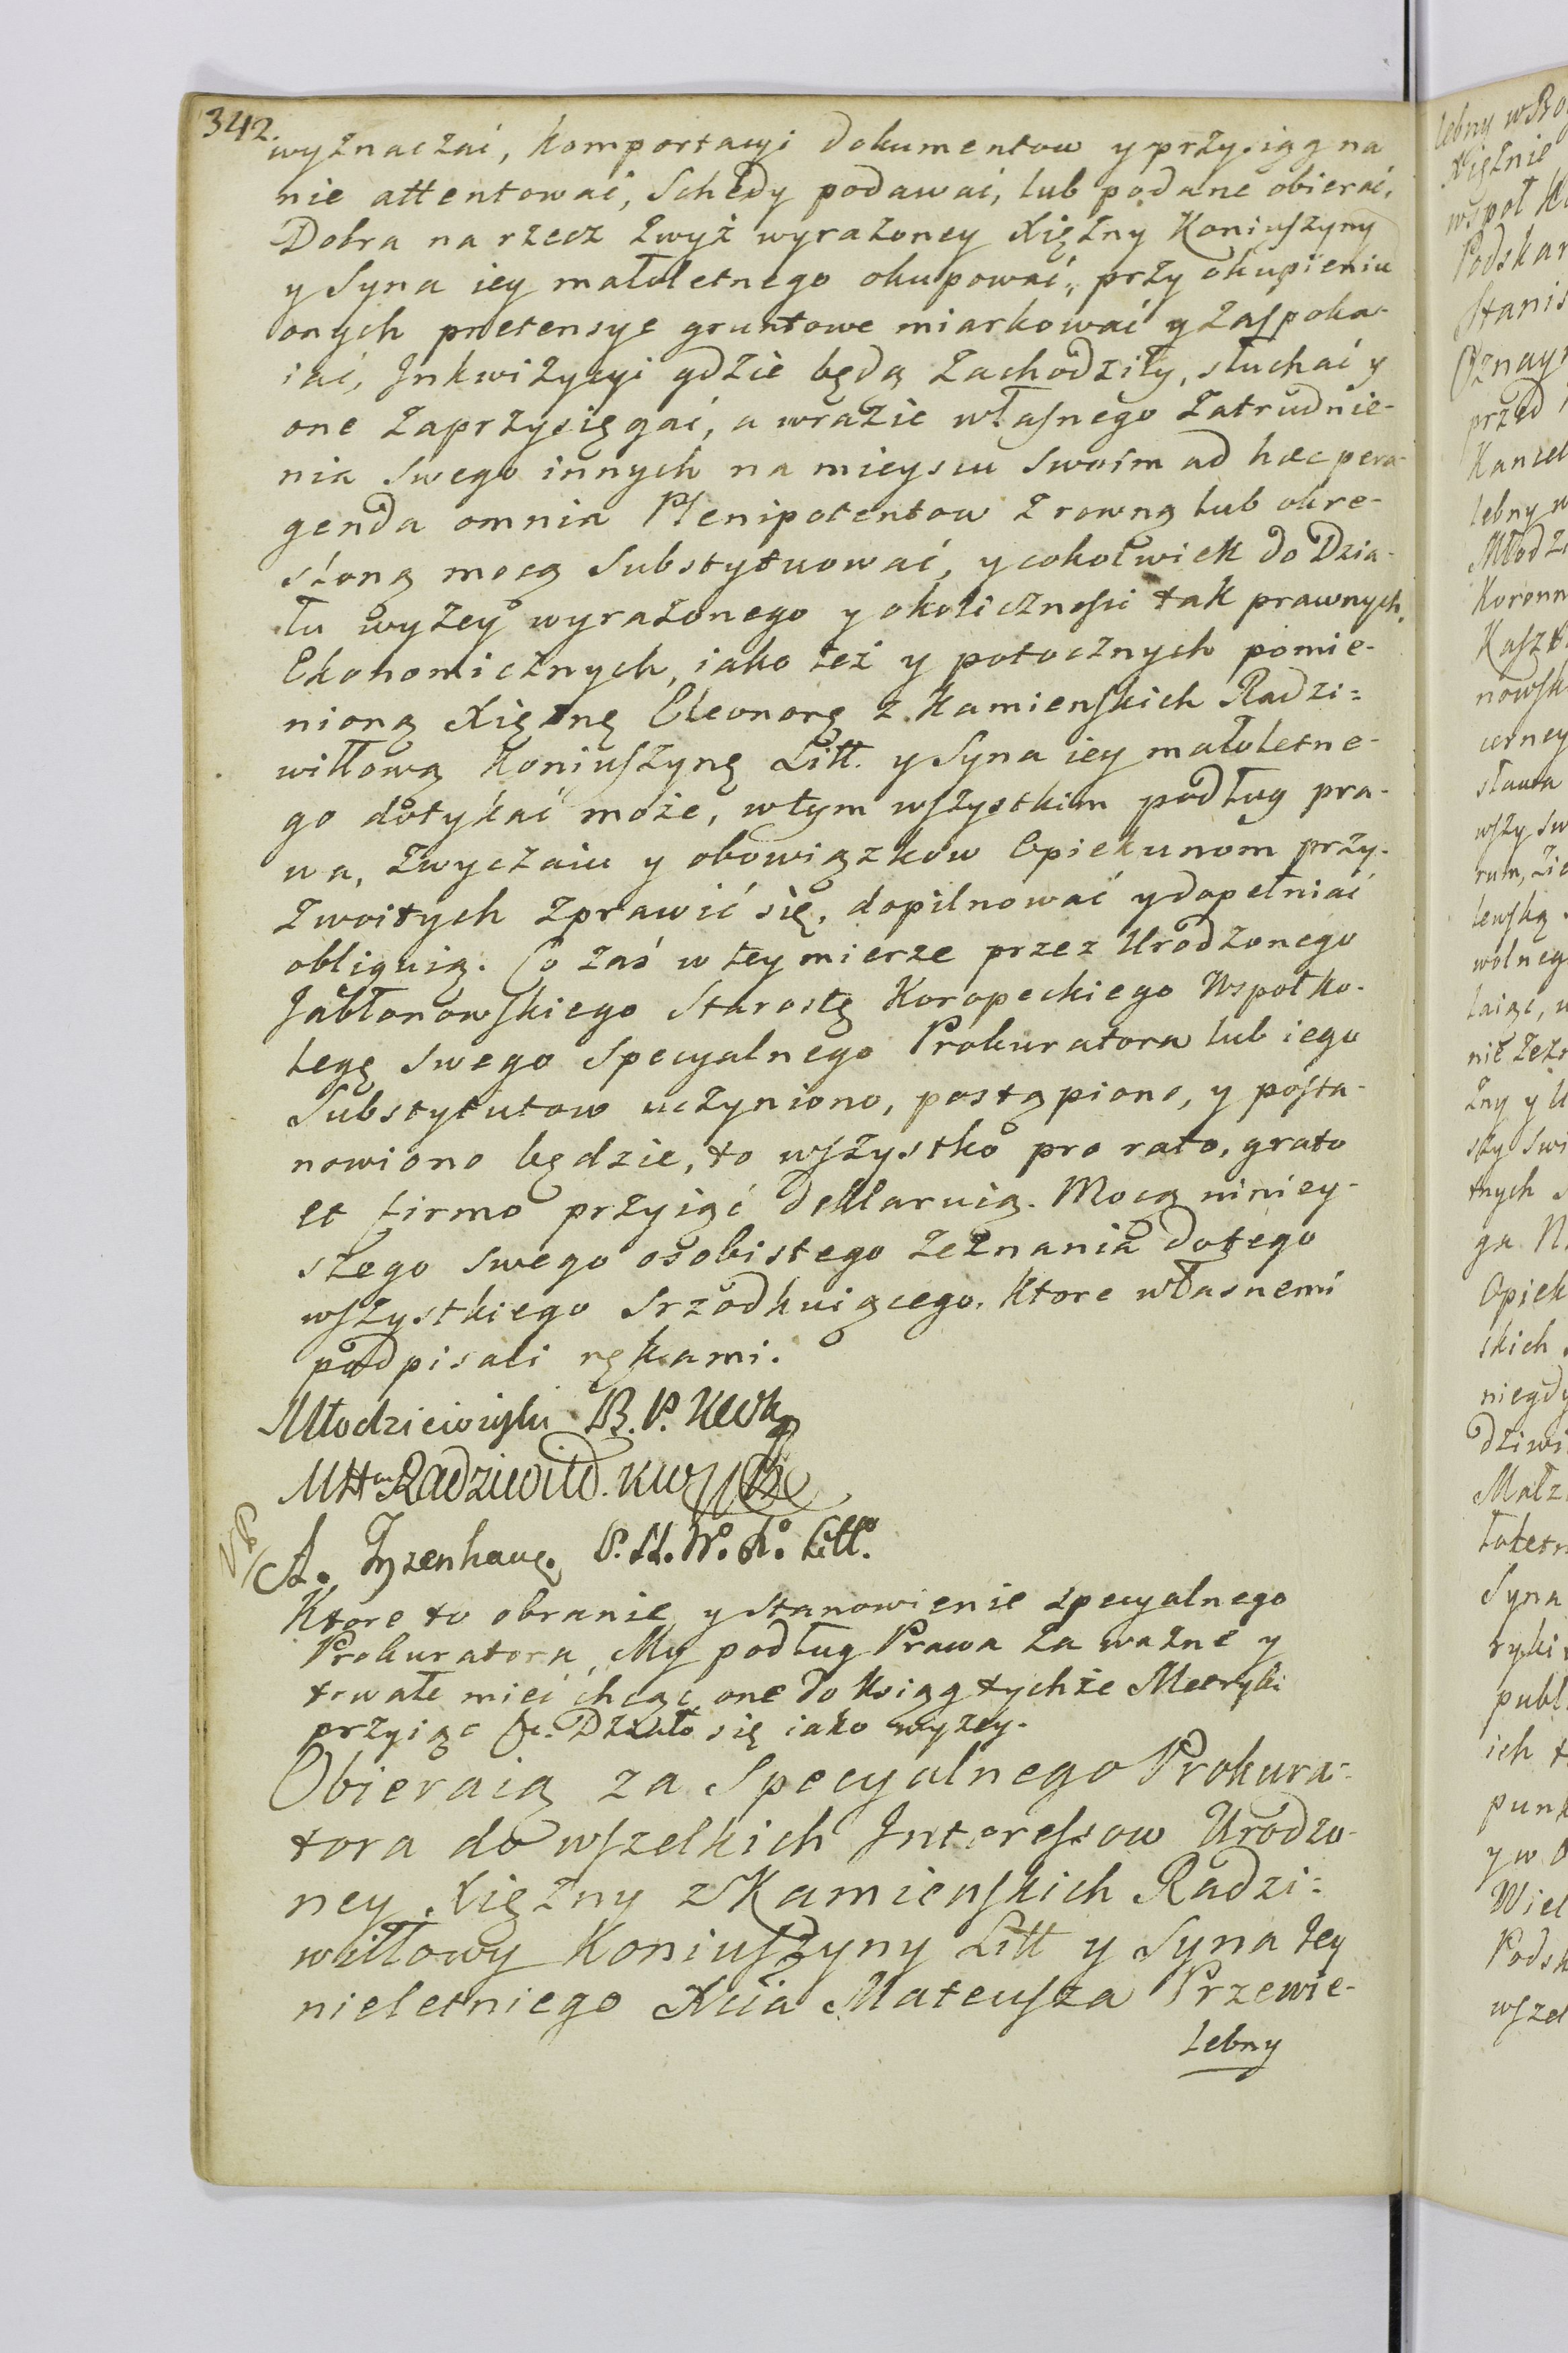 342.
wyznaczać, komportacyi dokumentow y przysiąg na
nie attentować, Schedy podawać, lub podane obierać.
Dobra na rzecz zwyż wyrażoney Xiężny Koniuszyny
y Syna iey małoletnego okupować, przy okupieniu
onych pretensye gruntowe miarkować y zaspoka-
iać, Jnkwizycyi gdzie będą zachodziły, słuchać y
one zaprzysięgać, a wrazie własnego zatrudnie-
nia swego innych na mieyscu swoim ad hæc pera-
genda omnia Plenipotentow z rowną lub okre-
sloną mocą Substytuować, y cokolwiek do Dzia-
łu wyżey wyrażonego y okolicznosci tak prawnych,
Ekonomicznych, iako też y potocznych pomie-
nioną Xiężnę Eleonorę z Kamienskich Radzi=
wiłłową Koniuszynę Litt. y Syna iey małoletne-
go dotykać może, w tym wszystkim podług pra-
wa, zwyczaiu y obowiązkow Opiekunom przy-
zwoitych zprawić się, dopilnować y dopełniać
obliguią. Co zaś w tey mierze przez Urodzonego
Jabłonowskiego Starostę Koropeckiego Wspołko-
legę swego specyalnego Prokuratora lub iego
Substytutow uczyniono, postąpiono, y posta-
nowiono będzie, to wszystko pro rato, grato
et firmo przyiąć deklaruią. Mocą niniey-
szego swego osobistego zeznania do tego
wszystkiego srzodkuiącego, Ktore własnemi
podpisali rękami.
Młodzieiowski B. P. KWK
Radziwiłł. KW
A. Tyzenhauz. P. N. W. X. Litt.
Ktore to obranie y stanowienie specyalnego
Prokuratora, My podług Prawa za ważne y
trwałe mieć chcąc, one do Xiąg tychże Metryki
przyiąć &c. Działo się iako wyżey.
Obieraią za Specyalnego Prokura-
tora do wszelkich Jnteressow Urodzo-
ney Xiężny z Kamienskich Radzi=
wiłłowy Koniuszyny Litt y Syna Jey
nieletniego Xcia Mateusza Przewie-
lebny